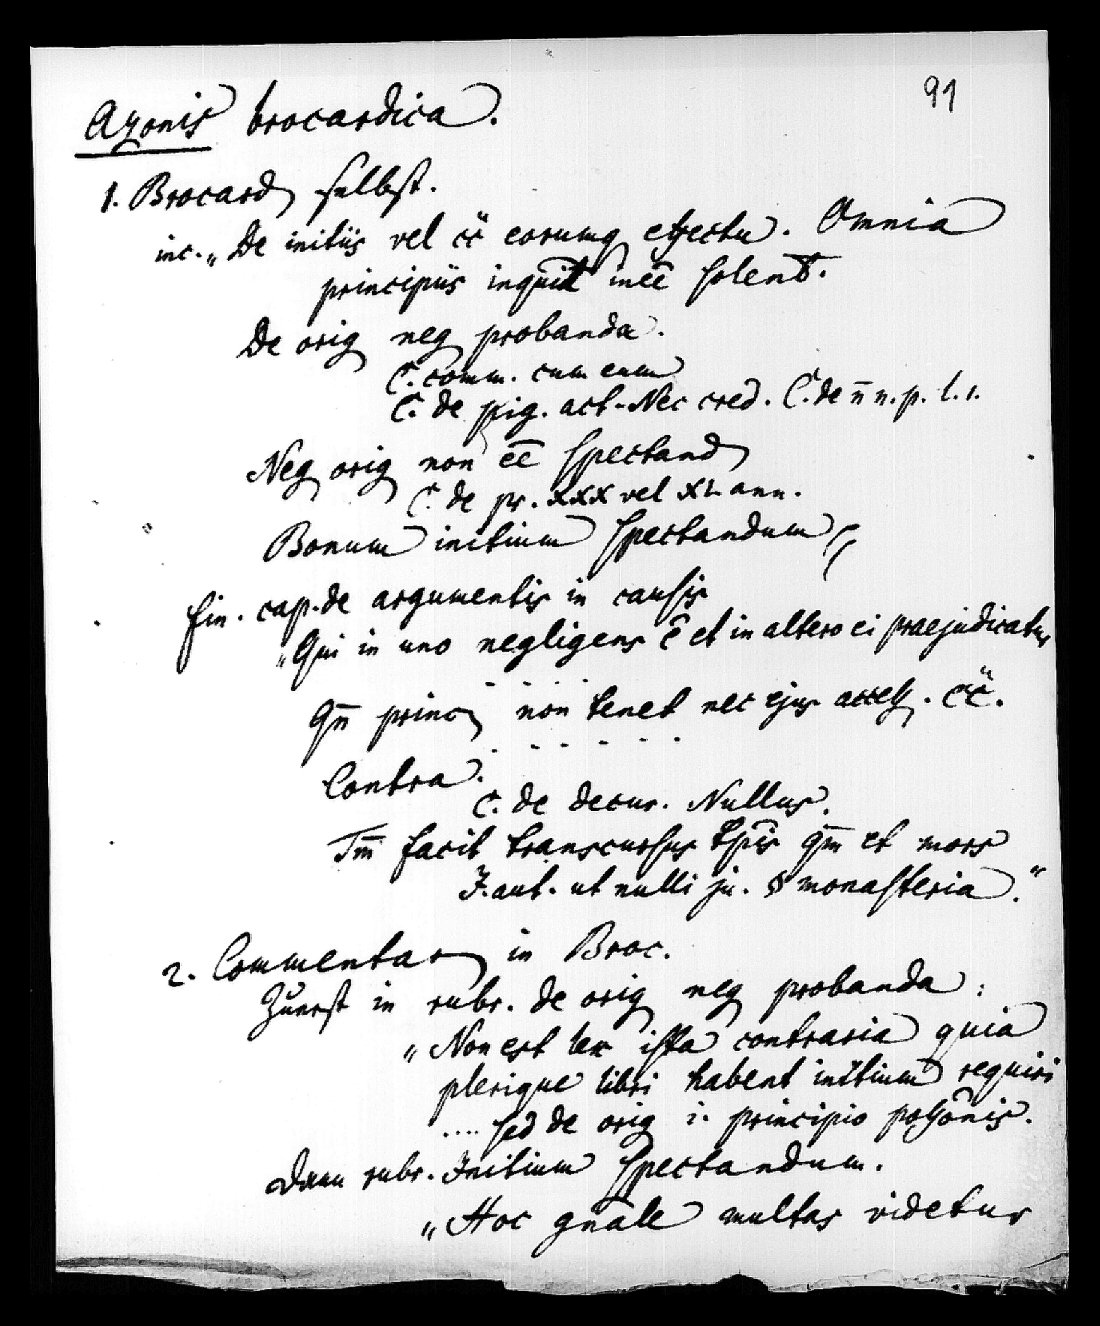 91
Azonis brocardica.
1. Brocard selbst.
inc. „De initiis vel cc̈ eorumq effectu. Omnia
principiis inquit ineē solent.
De orig neg probanda.
C. comm. cum eum
C. de pig. act. Nec cred. C. de n̄ n. p. l. 1.
Neg orig non eē spectand
C. de pr. XXX vel XL ann.
Bonum initium spectandum
fin. cap. de argumentis in causis
„Qui in uno negligens ē et in altero ei praejudicatur
. . . . . .
Qn̄ princ non tenet nec ejus access. cc̈.
. . . . . .
Contra.
C. de decur. Nullus.
Tm̄ facit transcursus tp̄is qm̄ et mors
I. aut. ut nulli ju. § monasteria.“
2. Commentar in Broc.
Zuerst in rubr. de orig neg probanda:
„Non est lex ista contraria quia
plerique libri habent initium requiri
.... sed de orig i. principio poss̄onis.
Dann rubr. Initium spectandum.
„Hoc gn̄ale multas videtur